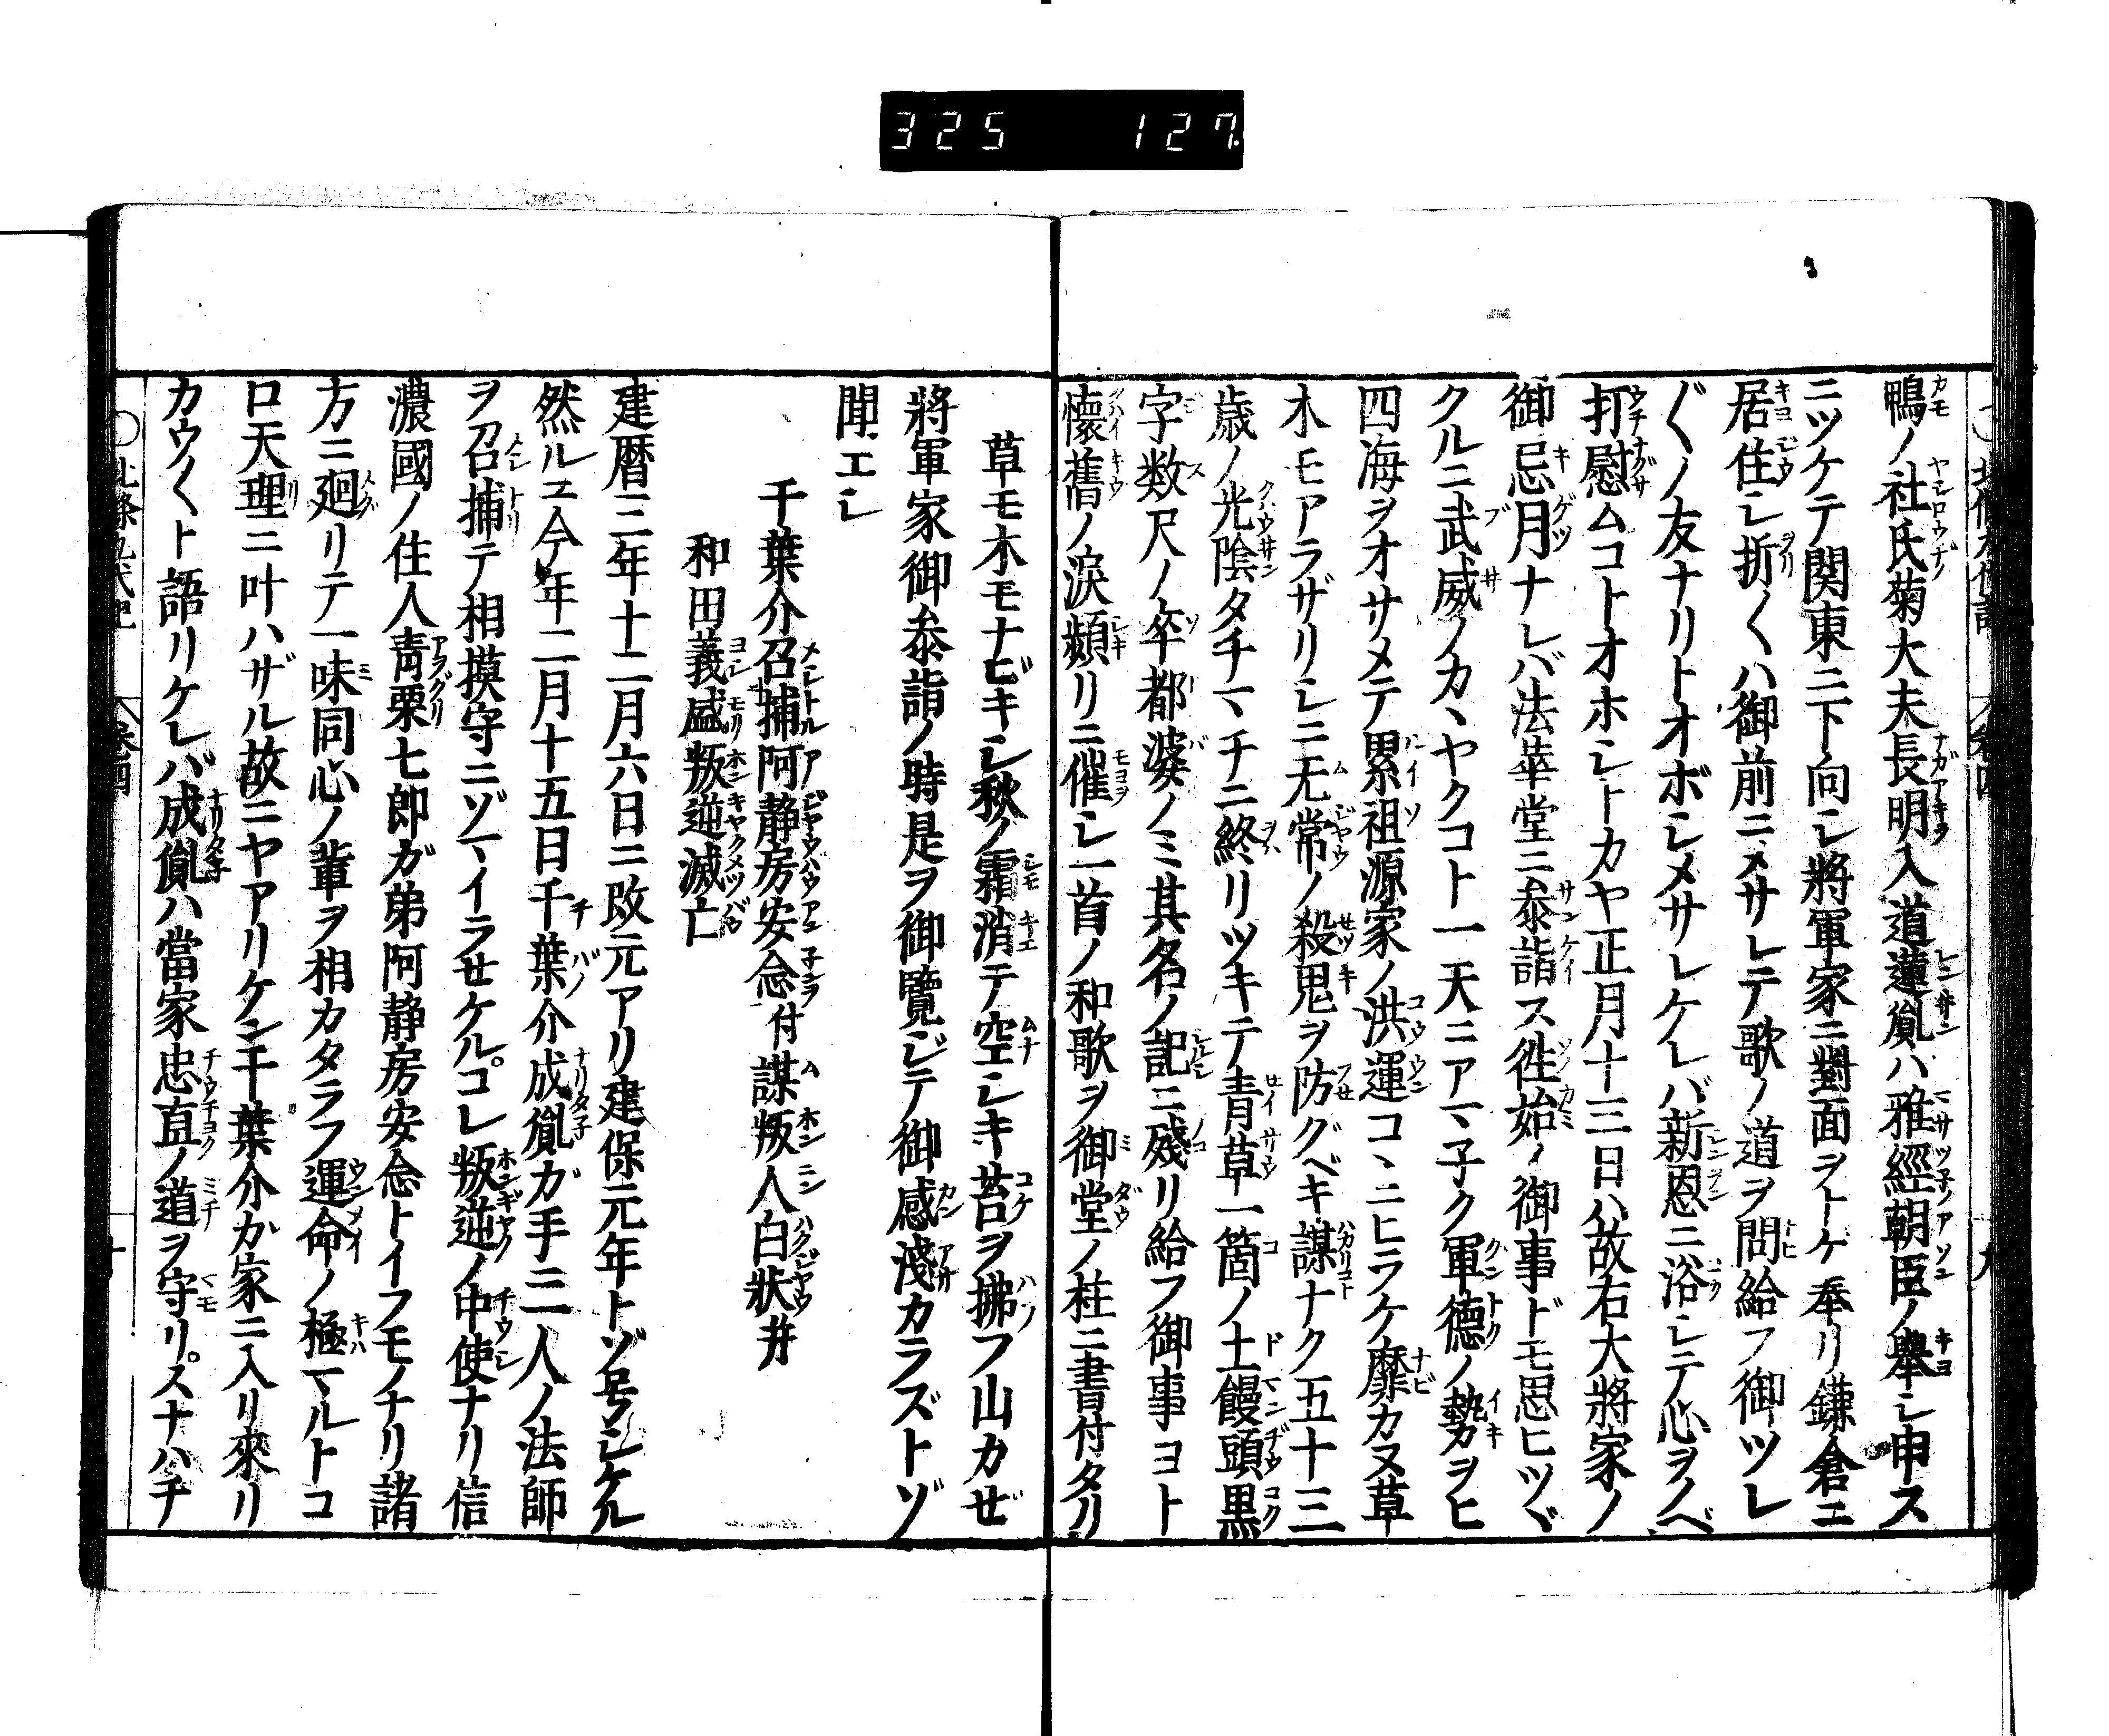 325 127
鴨ノ社氏菊大夫長明入道蓮胤ハ雅經朝臣ノ舉シ申ス
ニツケテ関東ニ下向シ將軍家ニ對面ヲトケ奉リ鎌倉ニ
居住シ折〱ハ御前ニメサレテ歌ノ道ヲ問給フ御ツレ
〲ノ友ナリトオボシメサレケレバ新恩ニ浴シテ心ヲノベ
打慰ムコトオホシトカヤ正月十三日ハ故右大將家ノ
御忌月ナレバ法華堂ニ参詣ス徃始ノ御事ドモ思ヒツヾ
クルニ武威ノカヽヤクコト一天ニアマ子ク軍德ノ勢ヲヒ
四海ヲオサメテ累祖源家ノ洪運コヽニヒラケ靡カヌ草
木モアラザリシニ无常ノ殺鬼ヲ防グベキ謀ナク五十三
歳ノ光陰タチマチニ終リツキテ青草一箇ノ土饅頭黒
字数尺ノ卒都婆ノミ其名ノ記ニ殘リ給フ御事ヨト
懷舊ノ淚頻リニ催シ一首ノ和歌ヲ御堂ノ柱ニ書付タリ
草モ木モナビキシ秋ノ霜消テ空シキ苔ヲ拂フ山カゼ
將軍家御参詣ノ時是ヲ御覽ジテ御感淺カラズトゾ
聞エシ
千葉介召捕阿静房安念付謀叛人白狀并
和田義盛叛逆滅亡
建暦三年十二月六日ニ改元アリ建保元年トゾ号シケル
然ルニ今年二月十五日千葉介成胤ガ手ニ一人ノ法師
ヲ召捕テ相摸守ニゾマイラセケルコレ叛逆ノ中使ナリ信
濃國ノ住人靑栗七郎ガ弟阿静房安念トイフモノナリ諸
方ニ廻リテ一味同心ノ輩ヲ相カタラフ運命ノ極マルトコ
ロ天理ニ叶ハザル故ニヤアリケン千葉介カ家ニ入リ來リ
カウ〱ト語リケレバ成胤ハ當家忠直ノ道ヲ守リスナハチ
〇北條九代記 卷四 十